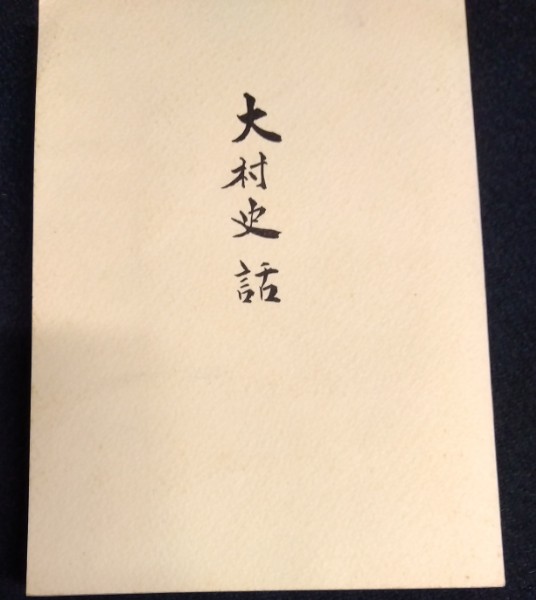 大村史話